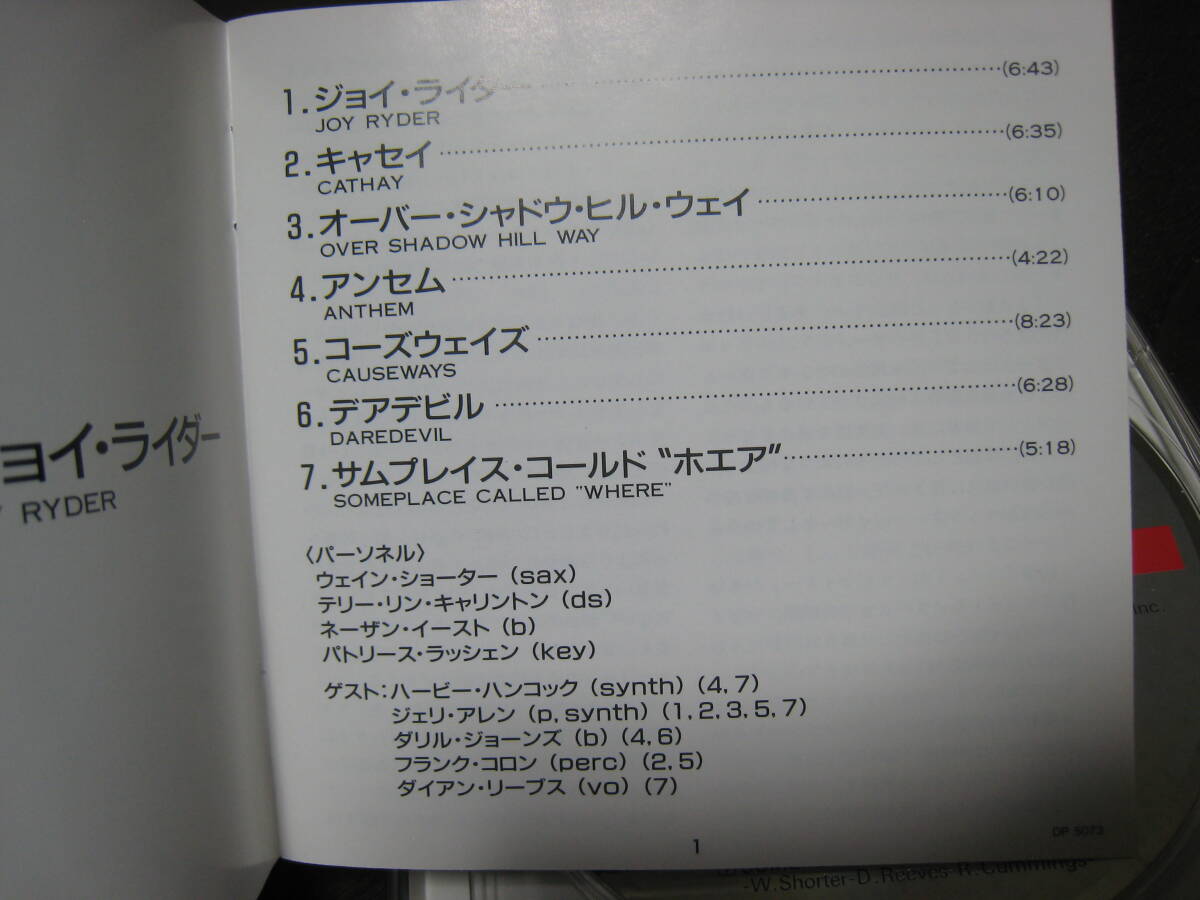 ョイ・ライダー
RYDER
1.ジョイ・ライダー ……(6:43)
JOY RYDER
2.キャセイ ……(6:35)
CATHAY
3.オーバー・シャドウ・ヒル・ウェイ ……(6:10)
OVER SHADOW HILL WAY
4.アンセム ……(4:22)
ANTHEM
5.コーズウェイズ ……(8:23)
CAUSEWAYS
6.デアデビル ……(6:28)
DAREDEVIL
7.サムプレイス・コールド〝ホエア〟……(5:18)
SOMEPLACE CALLED "WHERE"
〈パーソネル〉
ウェイン・ショーター (sax)
テリー・リン・キャリントン (ds)
ネーザン・イースト (b)
パトリース・ラッシェン (key)
ゲスト:ハービー・ハンコック (synth) (4, 7)
ジェリ・アレン (p, synth) (1, 2, 3, 5, 7)
ダリル・ジョーンズ (b) (4, 6)
フランク・コロン (perc) (2, 5)
ダイアン・リーブス (vo) (7)
1
DP 5073
Inc.
-W.Shorter-D.Reeves-R.Cummings-